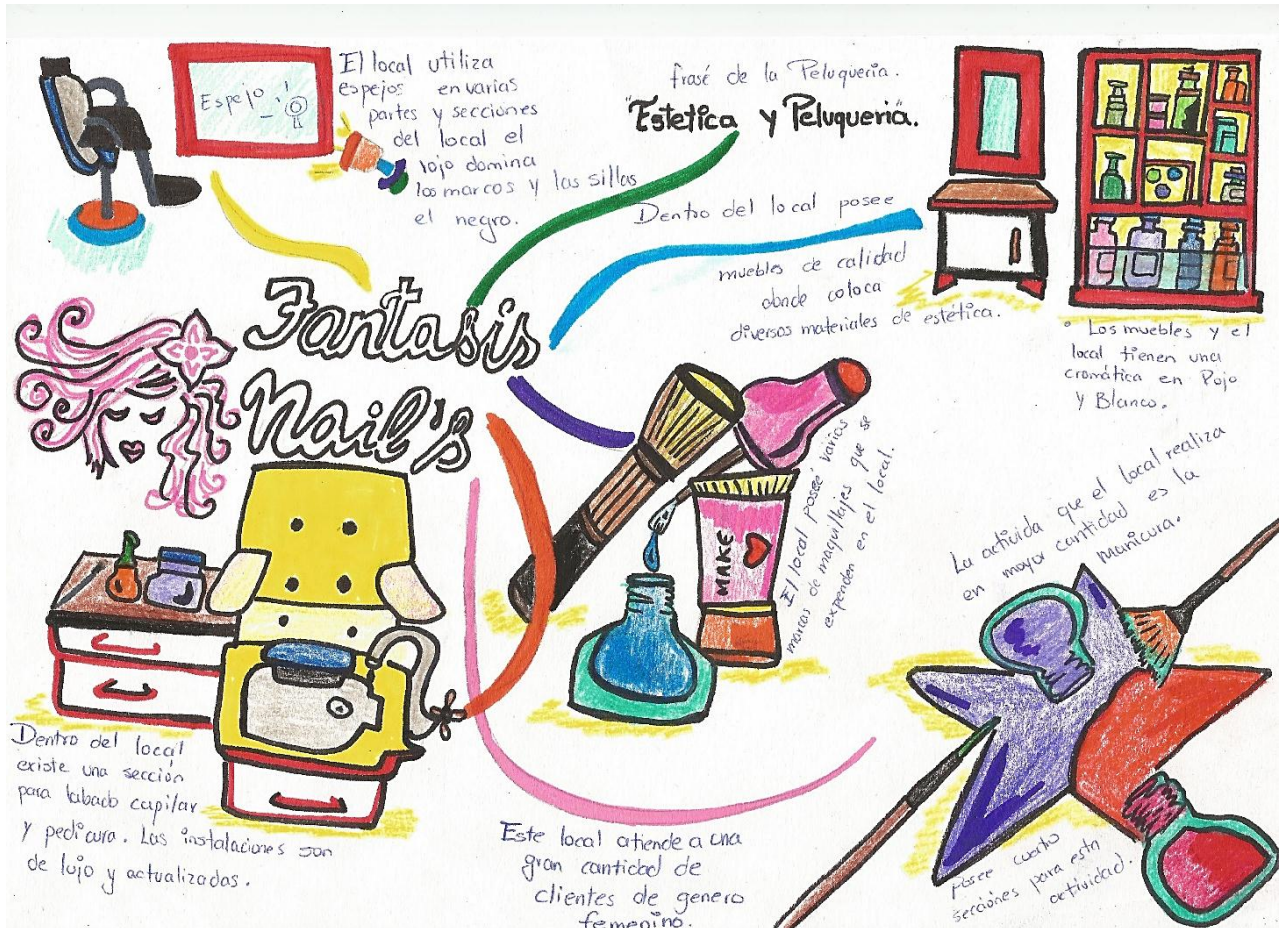 Espejo
El local utiliza
espejos en varias
partes y secciones
del local el
rojo domina
los marcos y las sillas
el negro.
frasé de la Peluqueria.
"Estetica y Peluqueria".
Dentro del local posee
muebles de calidad
donde coloca
diversos materiales de estética.
° Los muebles y el
local tienen una
cromática en Rojo
Y Blanco.
Fantasis
Nail's
MAKE
El local poseé varias
marcas de maquillajes que se
expenden en el local.
La activida que el local realiza
en mayor cantidad es la
manicura.
Posee cuatro
secciones para esta
actividad.
Dentro del local
existe una sección
para labado capilar
y pedicura. Las instalaciones son
de lujo y actualizadas.
Este local atiende a una
gran cantidad de
clientes de genero
femenino.